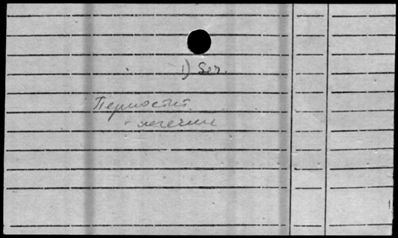 1) Ser.
Периостит
- лечение